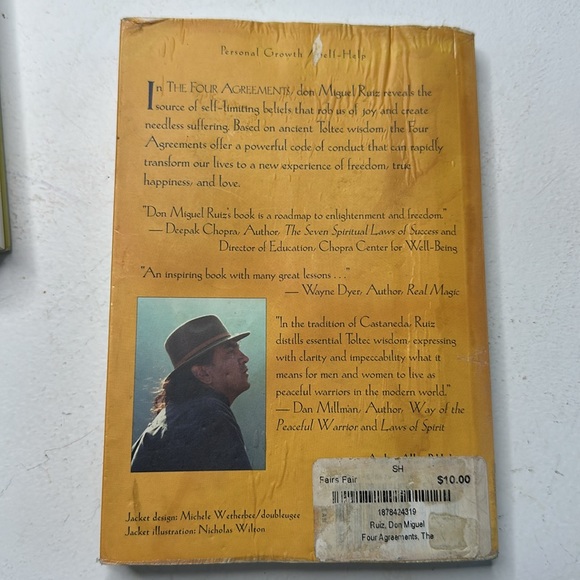 Personal Growth / Self-Help
In THE FOUR AGREEMENTS, don Miguel Ruiz reveals the
source of self-limiting beliefs that rob us of joy and create
needless suffering. Based on ancient Toltec wisdom, the Four
Agreements offer a powerful code of conduct that can rapidly
transform our lives to a new experience of freedom, true
happiness, and love.
"Don Miguel Ruiz's book is a roadmap to enlightenment and freedom."
— Deepak Chopra, Author, The Seven Spiritual Laws of Success and
Director of Education, Chopra Center for Well-Being
"An inspiring book with many great lessons . . ."
— Wayne Dyer, Author, Real Magic
"In the tradition of Castaneda, Ruiz
distills essential Toltec wisdom, expressing
with clarity and impeccability what it
means for men and women to live as
peaceful warriors in the modern world."
— Dan Millman, Author, Way of the
Peaceful Warrior and Laws of Spirit
SH
Fairs Fair $10.00
1878424319
Ruiz, Don Miguel
Four Agreements, The
Jacket design: Michele Wetherbee/doubleugee
Jacket illustration: Nicholas Wilton